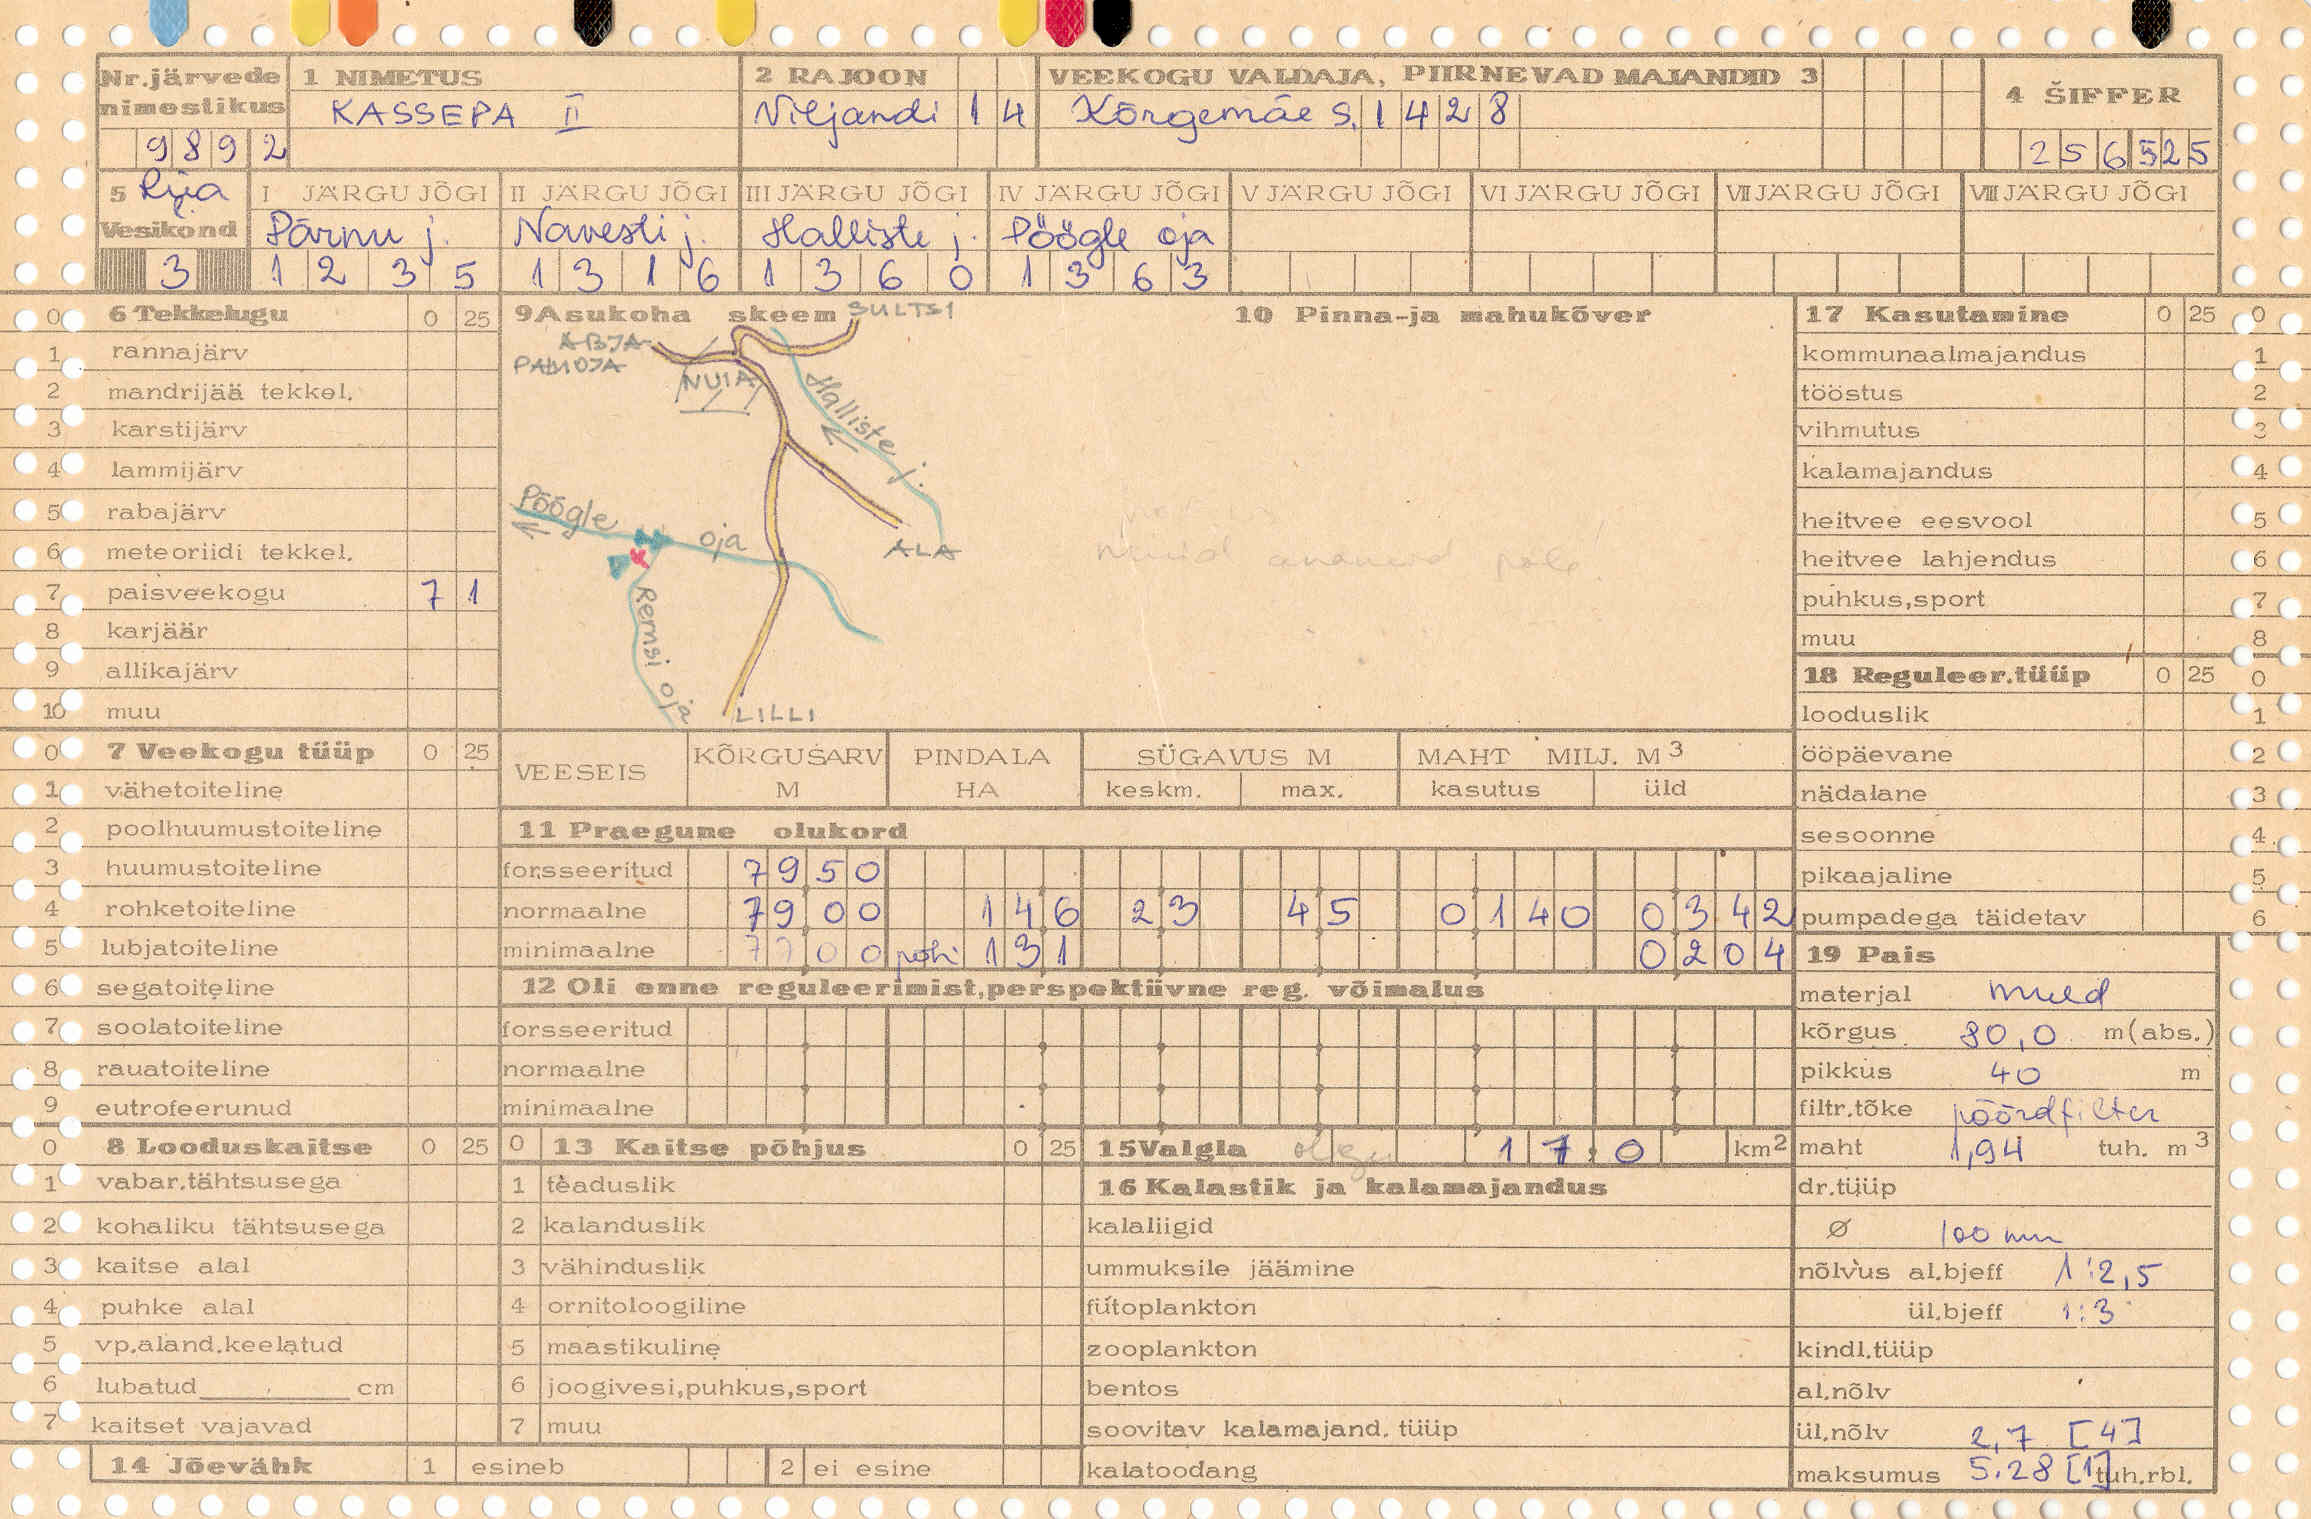 Nr.järvede 1 NIMETUS 2 RAJOON VEEKOGU VALDAJA, PIIRNEVAD MAJANDID 3 4 ŠIFFER
nimestikus KASSEPA II Viljandi 14 Kõrgemäe S. 1428
9892 256525
5 Riia I JÄRGU JÕGI II JÄRGU JÕGI III JÄRGU JÕGI IV JÄRGU JÕGI V JÄRGU JÕGI VI JÄRGU JÕGI VII JÄRGU JÕGI VIII JÄRGU JÕGI
Vesikond Pärnu j. Navesti j. Halliste j. Pöögle oja
3 1235 1316 1360 1363
0 6 Tekkelugu 0 25
1 rannajärv
2 mandrijää tekkel.
3 karstijärv
4 lammijärv
5 rabajärv
6 meteoriidi tekkel.
7 paisveekogu 7 1
8 karjäär
9 allikajärv
10 muu
9 Asukoha skeem
SULTSI
ABJA-
PALUOJA
NUIA
Halliste j.
Pöögle oja
ALA
Remsi oja
LILLI
10 Pinna-ja mahukõver
muid andmeid pole!
17 Kasutamine 0 25 0
kommunaalmajandus 1
tööstus 2
vihmutus 3
kalamajandus 4
heitvee eesvool 5
heitvee lahjendus 6
puhkus,sport 7
muu 8
18 Reguleer.tüüp 0 25 0
looduslik 1
ööpäevane 2
nädalane 3
sesoonne 4
pikaajaline 5
pumpadega täidetav 6
0 7 Veekogu tüüp 0 25
1 vähetoiteline
2 poolhuumustoiteline
3 huumustoiteline
4 rohketoiteline
5 lubjatoiteline
6 segatoiteline
7 soolatoiteline
8 rauatoiteline
9 eutrofeerunud
VEESEIS KÕRGUSARV M PINDALA HA SÜGAVUS M MAHT MILJ. M3
keskm. max. kasutus üld
11 Praegune olukord
forsseeritud 7950
normaalne 7900 146 23 45 0140 0342
minimaalne 7700 põhi 131 0204
12 Oli enne reguleerimist,perspektiivne reg. võimalus
forsseeritud
normaalne
minimaalne
19 Pais
materjal muld
kõrgus 80,0 m(abs.)
pikkus 40 m
filtr.tõke pöördfilter
maht 1,94 tuh. m3
dr.tüüp
Ø 100 mm
nõlvus al.bjeff 1:2,5
ül.bjeff 1:3
kindl.tüüp
al.nõlv
ül.nõlv 2,7 [4]
maksumus 5.28 [1] tuh.rbl.
0 8 Looduskaitse 0 25
1 vabar.tähtsusega
2 kohaliku tähtsusega
3 kaitse alal
4 puhke alal
5 vp.aland.keelatud
6 lubatud cm
7 kaitset vajavad
0 13 Kaitse põhjus 0 25
1 teaduslik
2 kalanduslik
3 vähinduslik
4 ornitoloogiline
5 maastikuline
6 joogivesi,puhkus,sport
7 muu
14 Jõevähk 1 esineb 2 ei esine
15 Valgla 17,0 km2
16 Kalastik ja kalamajandus
kalaliigid
ummuksile jäämine
fütoplankton
zooplankton
bentos
soovitav kalamajand. tüüp
kalatoodang